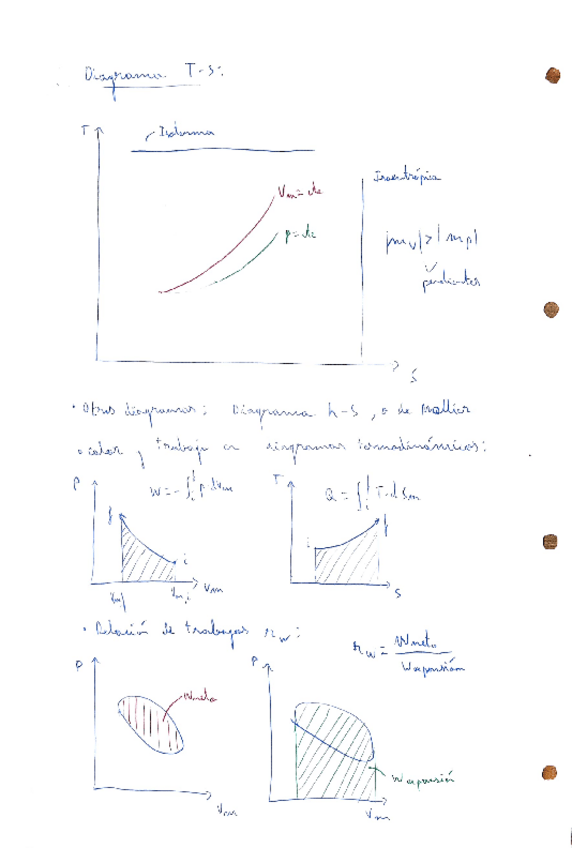 Diagrama T-S:
T
Isoterma
Isoentrópica
Vm = cte
p = cte
|mv| > |mp|
pendientes
S
· Otros diagramas: Diagrama h-S, o de Mollier
· Calor y trabajo en diagramas termodinámicos:
P
W = -∫ᵢᶠ p dVm
T
Q = ∫ᵢᶠ T·dSm
f
f
i
i
Vm,f
Vm,i
Vm
S
· Relación de trabajos rw:
rw = Wneto / Wexpansión
P
P
Wneto
Wexpansión
Vm
Vm